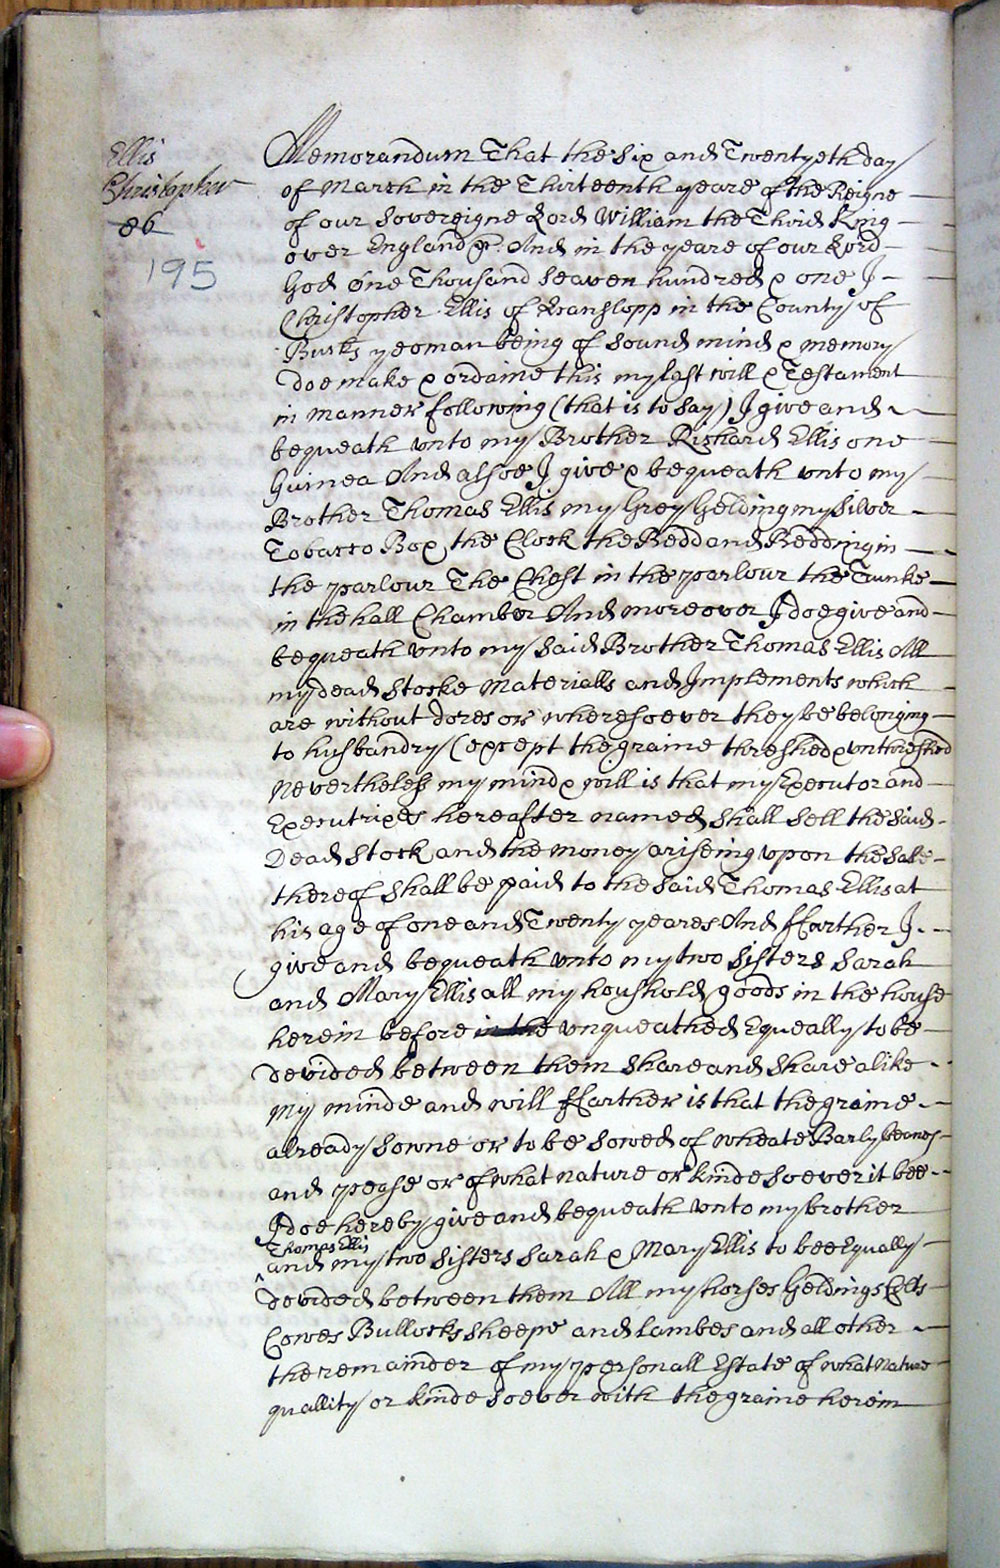 Ellis
Christopher
86
195
Memorandum That the Six and Twentyeth day
of March in the Thirteenth yeare of the Reigne
of our Sovereigne Lord William the Third King
over England &c. And in the yeare of our Lord
God One Thousand Seaven hundred & one I
Christopher Ellis of Hanslopp in the County of
Bucks yeoman being of sound mind & memory
doe make & ordaine this my last will & Testament
in manner following (that is to say) I give and
bequeath unto my Brother Richard Ellis one
Guinea And alsoe I give & bequeath unto my
Brother Thomas Ellis my Grey Gelding my Silver
Tobacco Box, the Clock the Bedd and Bedding in
the parlour The Chest in the parlour the Trunke
in the hall Chamber And moreover I doe give and
bequeath unto my said Brother Thomas Ellis All
my dead Stocke Materialls and Implements which
are without dores or wheresoever they be belonging
to husbandry (except the graine threshed & unthreshed
Nevertheless my mind & will is that my Executor and
Executrixes hereafter named shall sell the said
Dead Stock and the money ariseing upon the Sale
thereof shall be paid to the said Thomas Ellis at
his age of one and Twenty yeares And ffarther I
give and bequeath unto my two Sisters Sarah
and Mary Ellis all my houshold goods in the house
herein before in the unqueathed Equeally to be
devided between them share and share alike
My minde and will ffarther is that the graine
already sowne or to be sowed of wheate Barly beanes
and pease or of what nature or kinde soever it bee
I doe hereby give and bequeath unto my brother
Thomas Ellis
and my two Sisters Sarah & Mary Ellis to bee Equally
devided between them All my horses Geldings Colts
Cowes Bullocks sheepe and Lambes and all other
the remainder of my personall Estate of what Nature
quallity or kinde soever with the graine herein